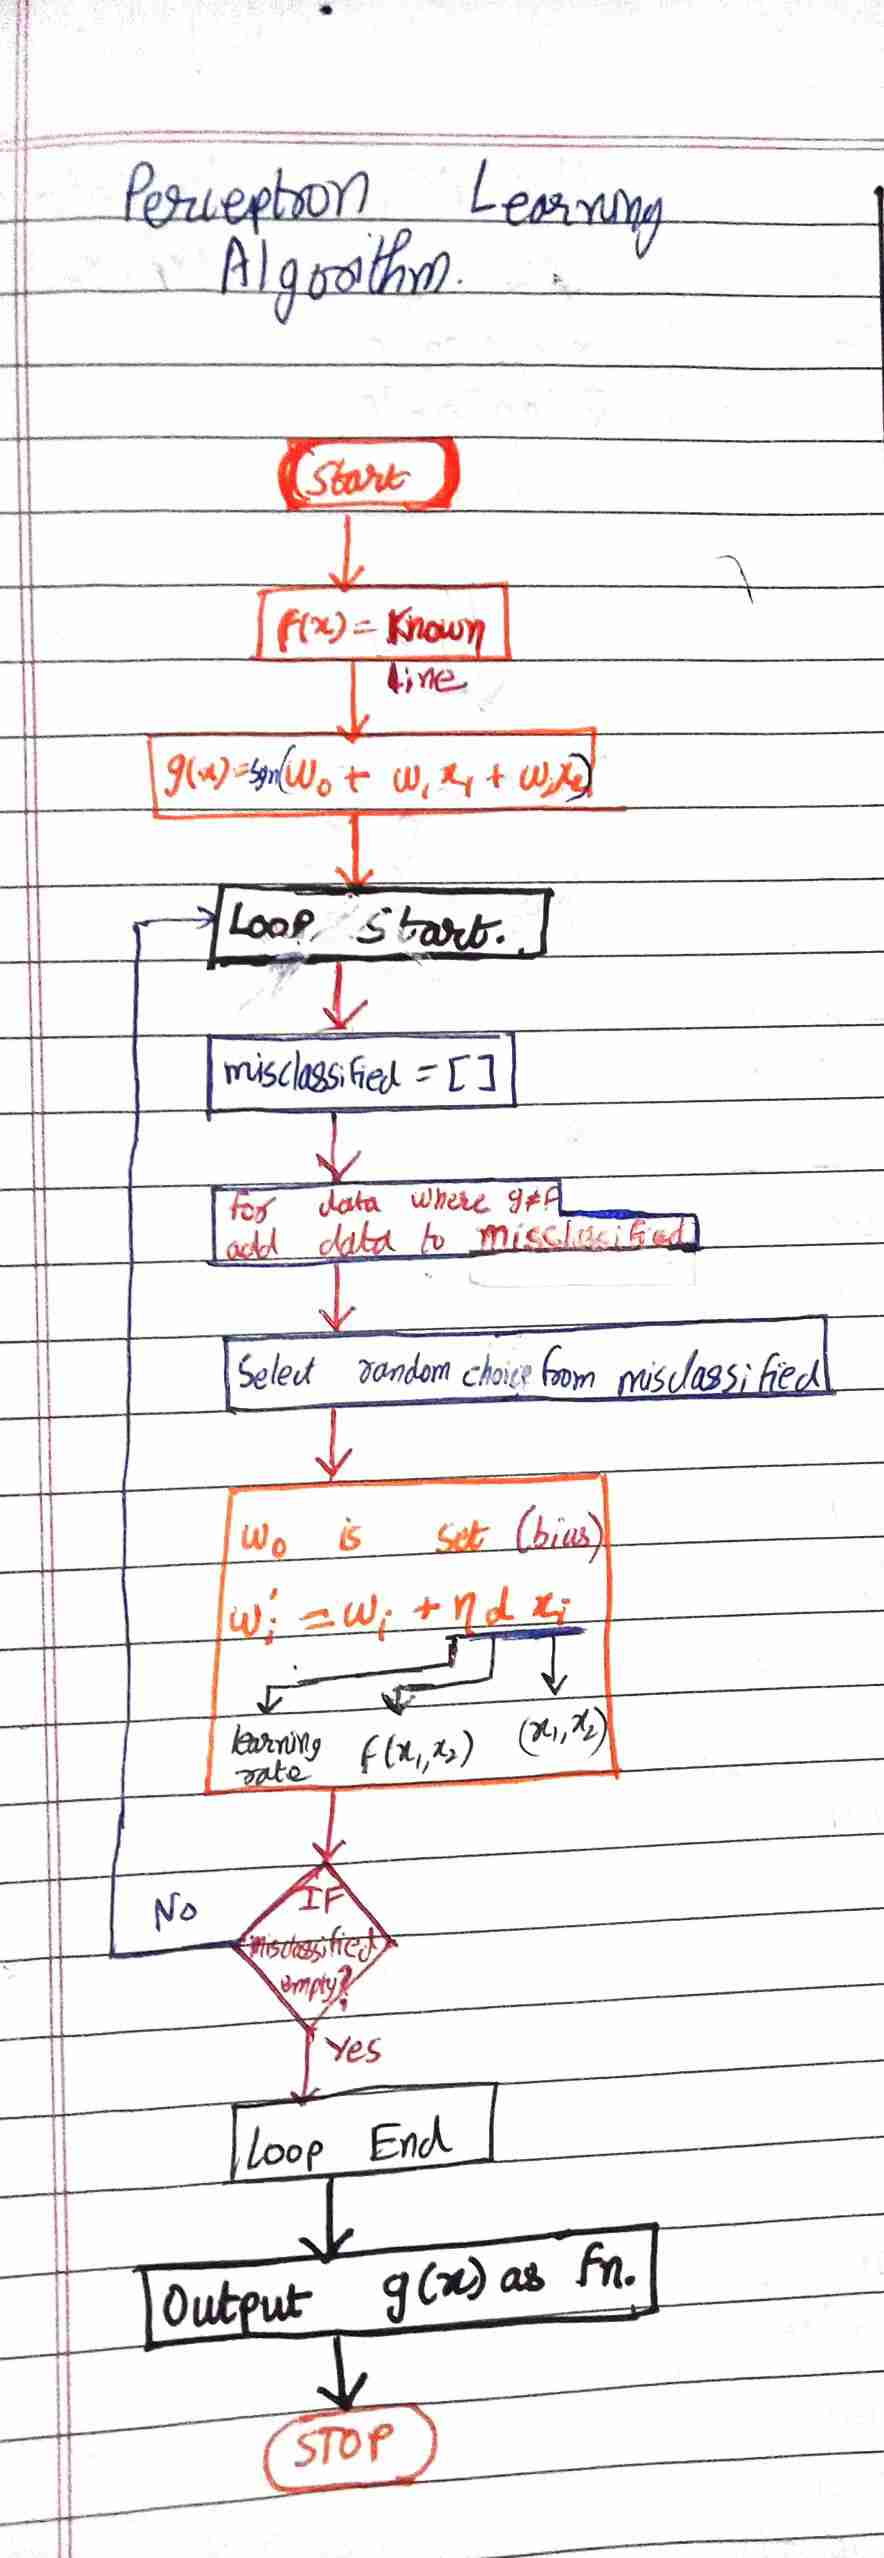 Perceptron Learning
Algorithm.
Start
f(x) = Known
line
g(x) = sgn(w₀ + w₁ x₁ + w₂x₂)
Loop Start.
misclassified = [ ]
for data where g≠f
add data to misclassified
Select random choice from misclassified
w₀ is set (bias)
wᵢ' = wᵢ + η d xᵢ
learning
rate
f(x₁,x₂)
(x₁,x₂)
IF
misclassified
empty?
No
Yes
Loop End
Output g(x) as fn.
STOP